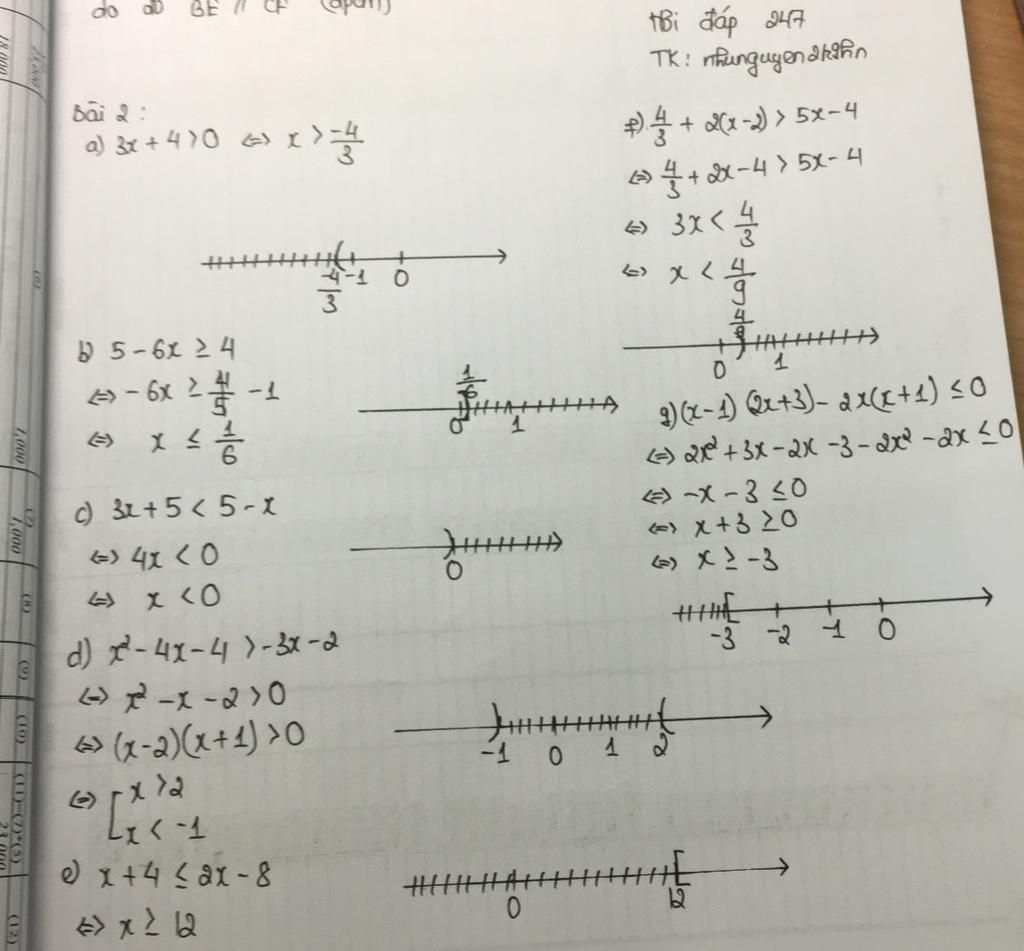 do đó BE // CF (đpcm)
Hỏi đáp 247
TK: nhunguyen2k9hn
Bài 2:
a) 3x + 4 > 0 ⇔ x > -4/3
-4/3 -1 0
b) 5 - 6x ≥ 4
⇔ -6x ≥ 4/5 - 1
⇔ x ≤ 1/6
1/6
0 1
c) 3x + 5 < 5 - x
⇔ 4x < 0
⇔ x < 0
0
d) x² - 4x - 4 > -3x - 2
⇔ x² - x - 2 > 0
⇔ (x-2)(x+1) > 0
⇔ [ x > 2
x < -1
-1 0 1 2
e) x + 4 ≤ 2x - 8
⇔ x ≥ 12
0 12
f) 4/3 + 2(x-2) > 5x - 4
⇔ 4/3 + 2x - 4 > 5x - 4
⇔ 3x < 4/3
⇔ x < 4/9
4/9
0 1
g) (x-1)(2x+3) - 2x(x+1) ≤ 0
⇔ 2x² + 3x - 2x - 3 - 2x² - 2x ≤ 0
⇔ -x - 3 ≤ 0
⇔ x + 3 ≥ 0
⇔ x ≥ -3
-3 -2 -1 0
1,000
1,000
(7)
(8)
(9)
(10)
(12)